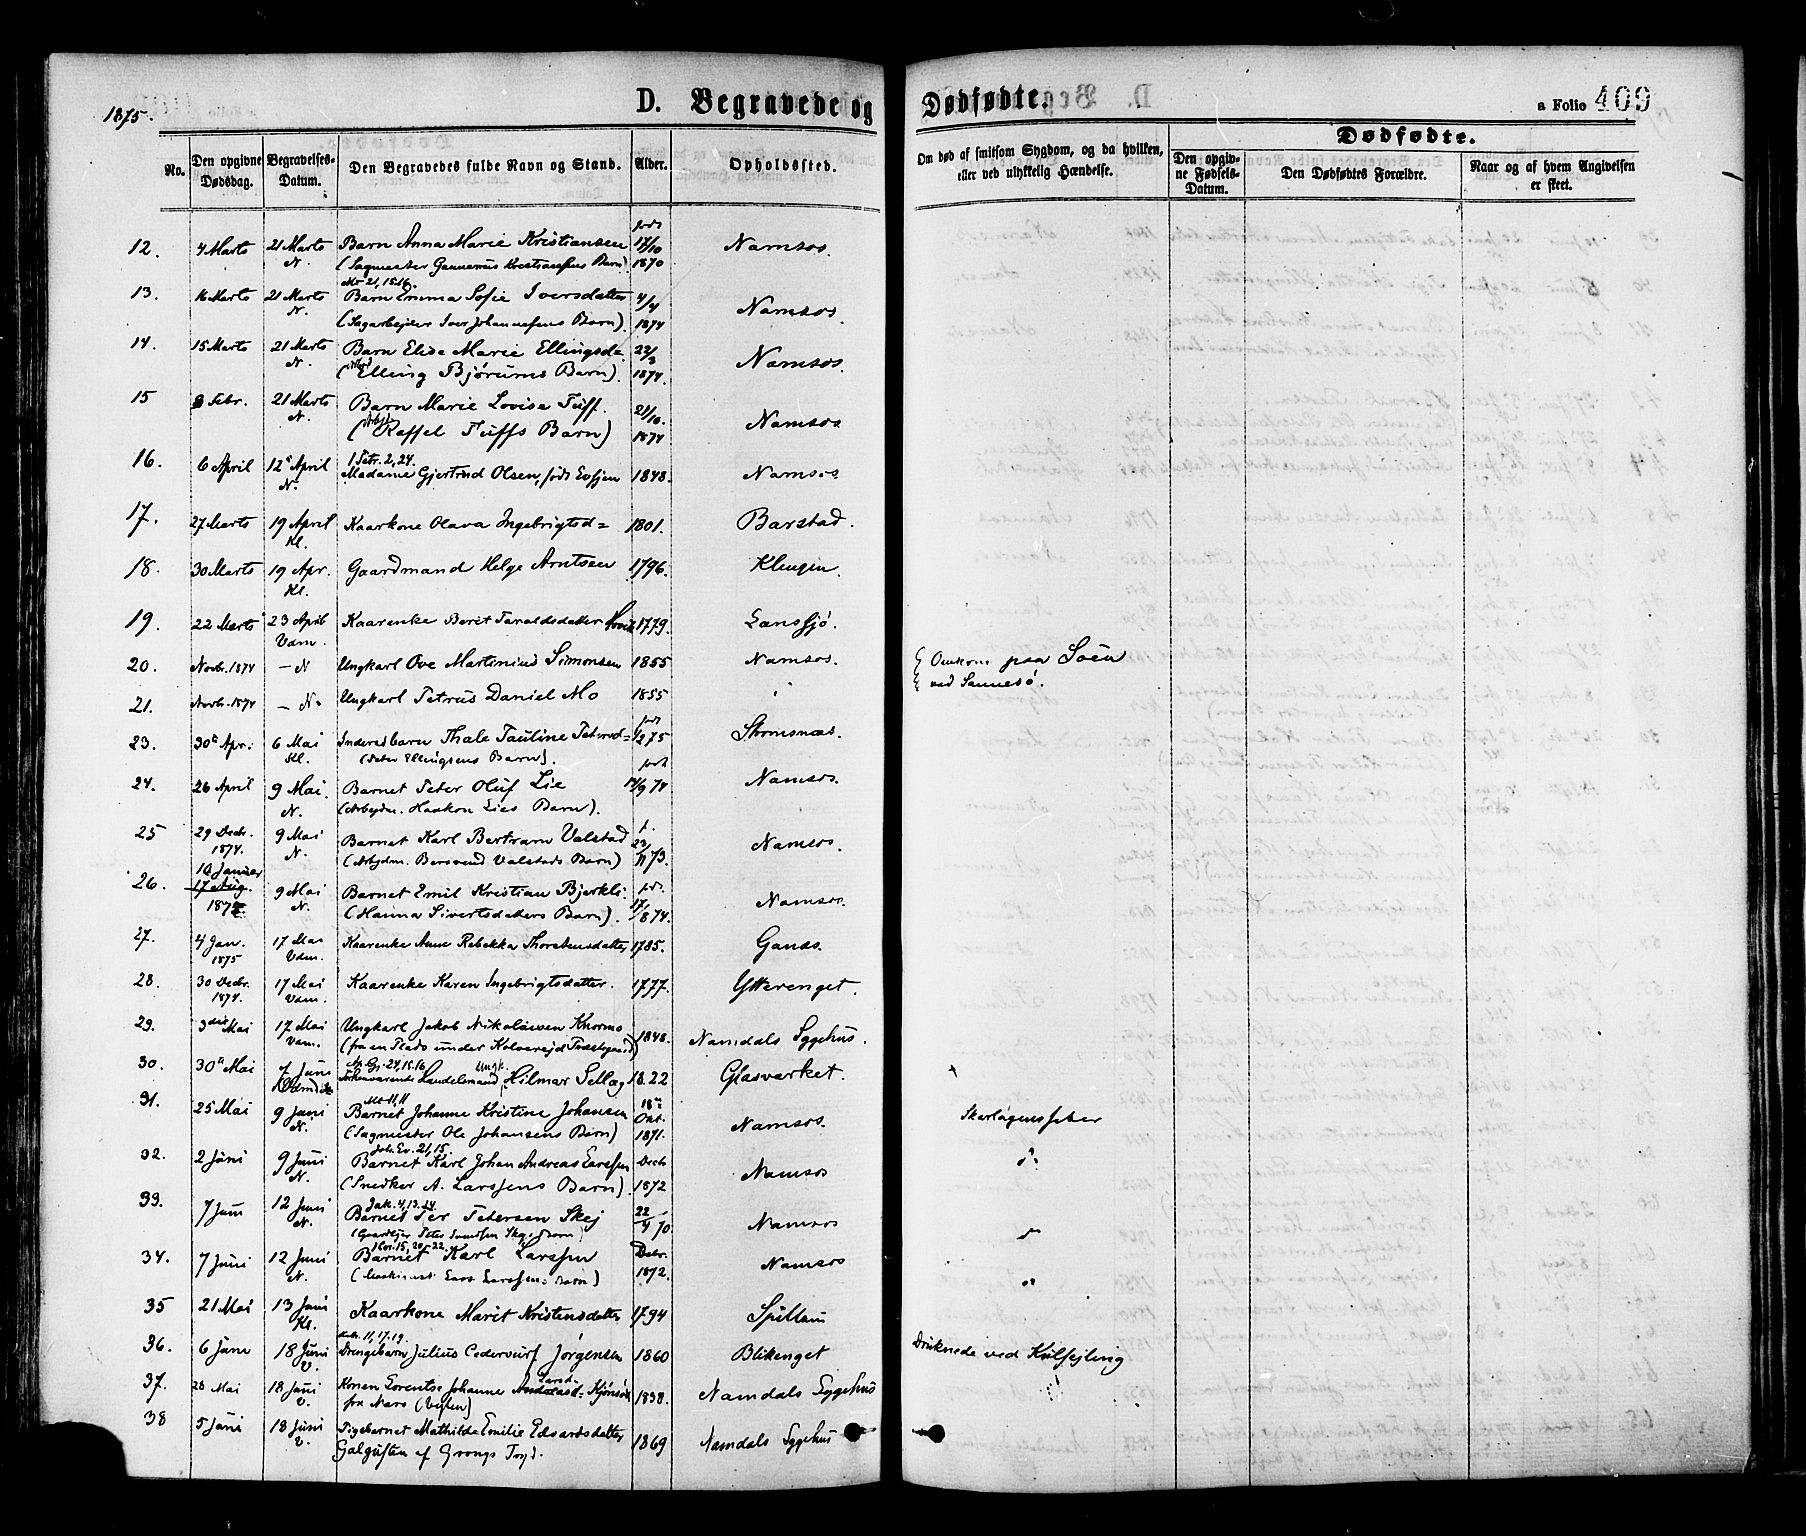 1875.
D. Begravede og Dødfødte.
a Folio 409
Dødfødte.
No. Den opgivne Dødsdag. Begravelses-Datum. Den Begravedes fulde Navn og Stand. Alder. Opholdssted. Om død af smitsom Sygdom, og da hvilken, eller ved ulykkelig Hændelse. Den opgivne Fødsels-Datum. Den Dødfødtes Forældre. Naar og af hvem Angivelsen er skeet.
12. 4 Marts 21 Marts Barn Anna Marie Kristiansen født 17/10 1870 Namsos.
N. (Sagmester Kristiansens Barn)
Mt 21, 15.16.
13. 16 Marts 21 Marts Barn Emma Sofie Iversdatter 4/4 1874 Namsos.
N. (Sagarbejder Iver Johannesens Barn)
14. 15 Marts 21 Marts Barn Elise Marie Ellingsd= 22/3 1874. Namsos.
N. (Arbd Elling Bjørums Barn).
15 8 Febr. 21 Marts Barn Marie Lovise Tuff. 21/10. 1874 Namsos
N. (Arbd. Raffel Tuffs Barn)
1 Petr. 2, 24.
16. 6 April 12 April Madame Gjertrud Olsen, født 1848. Namsos
N.
17. 27 Marts 19 April Kaarkone Olava Ingebrigtsd= 1801. Barstad.
Kl.
18. 30 Marts 19 Apr. Gaardmand Helge Arntsen 1796. Klingen.
Kl.
19. 22 Marts 23 April Kaarenke Berit Taraldsdatter 1779. Lanssjø.
Vdm.
20. Novb. 1874 – N Ungkarl Ove Martinius Simonsen 1855 Namsos. Omkom paa Søen
21. Novb. 1874 – N. Ungkarl Petrus Daniel Mo 1855 " ved Sannesø.
23. 30te Apr. 6 Mai Inderstbarn Thale Pauline Petersd= født 1/2 75 Strømsnæs.
Kl. (Peter Ellingsens Barn).
24. 26 April 9 Mai. Barnet Peter Oluf Lie født 14/9 74 Namsos.
N. (Arbejdm. Haakon Lies Barn).
25 29 Decbr. 1874. 9 Mai Barnet Karl Bertram Valstad f. 23/11 73. Namsos.
N. (Arbejdm. Bersvend Valstads Barn)
26. 10 Januar 17 Aug. 1875. 9 Mai Barnet Emil Kristian Bjerkli født 17/8 74. Namsos.
N. (Hanna Sivertsdatters Barn).
27. 4 Jan. 1875 17 Mai Kaarenke Anne Rebekka Thorstensdatter 1785. Ganøs.
Vdm.
28. 30 Decbr. 1874. 17 Mai Kaarenke Karen Ingebrigtsdatter. 1777. Ytterenget.
Vdm.
29. 3die Mai 17 Mai Ungkarl Jakob Nikolaisen Knormo 1848. Namdals Sygehus.
Vdm. (fra en Plads under Kolvereid Præstegaard)
30. 30te Mai 7 Juni Forhenværende Handelsmand, Ungk. Hilmar Sellæg 1822 Glasværket.
Mt 11, 11
31. 25 Mai 9 Juni Barnet Johanne Kristine Johansen 18de Okt. 1871. Namsos. Skarlagensfeber
N. (Sagmester Ole Johansens Barn)
Joh. Ev. 21, 15.
32. 2 Juni 9 Juni Barnet Karl Johan Andreas Larssen Decb 1872 Namsos do
N. (Snedker A. Larssens Barn)
Jak. 4, 13.14
33. 7 Juni 12 Juni Barnet Per Petersen Skej 22/4 70 Namsos do
N.
1 Cor. 15, 20-22.
34. 7 Juni 12 Juni Barnet Karl Larssen Decbr. 1872. Namsos do
N. (Maskinist Lars Larssens Barn)
35 21 Mai 13 Juni Kaarkone Marit Kristensdatter 1794 Spillum
Kl.
36. 6 Juni 18 Juni Drengebarn Julius Cedervurf Jørgensen 1860 Blikenget Druknede ved Kulsejling
V.
37. 28 Mai 18 Juni Konen Lorentse Johanne 1838. Namdals Sygehus
V. fra Nærø
38 5 Juni 18 Juni Pigebarnet Mathilde Emilie Edvardsdatter 1869 Namdals Sygehus
V. Galguften af Grongs Prgj.